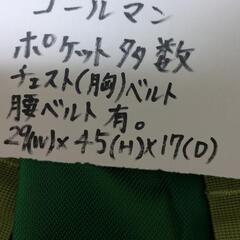 コールマン
ポケット多数
チェスト(胸)ベルト
腰ベルト有。
29(W)×45(H)×17(D)